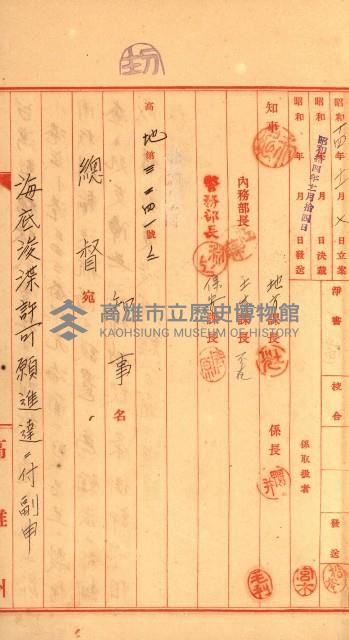 昭和十四年十一月 日立案
昭和 年 月 日決裁
昭和拾四年十一月拾四日
昭和 年 月 日發送
淨書
校合
發送
係取扱者
知事
內務部長
警務部長
地方課長
土木課長
保安課長
係長
高地第三一四一號ノ
知事名
總督宛
海底浚渫許可願進達ニ付副申
高雄州
高雄市立歷史博物館
KAOHSIUNG MUSEUM OF HISTORY